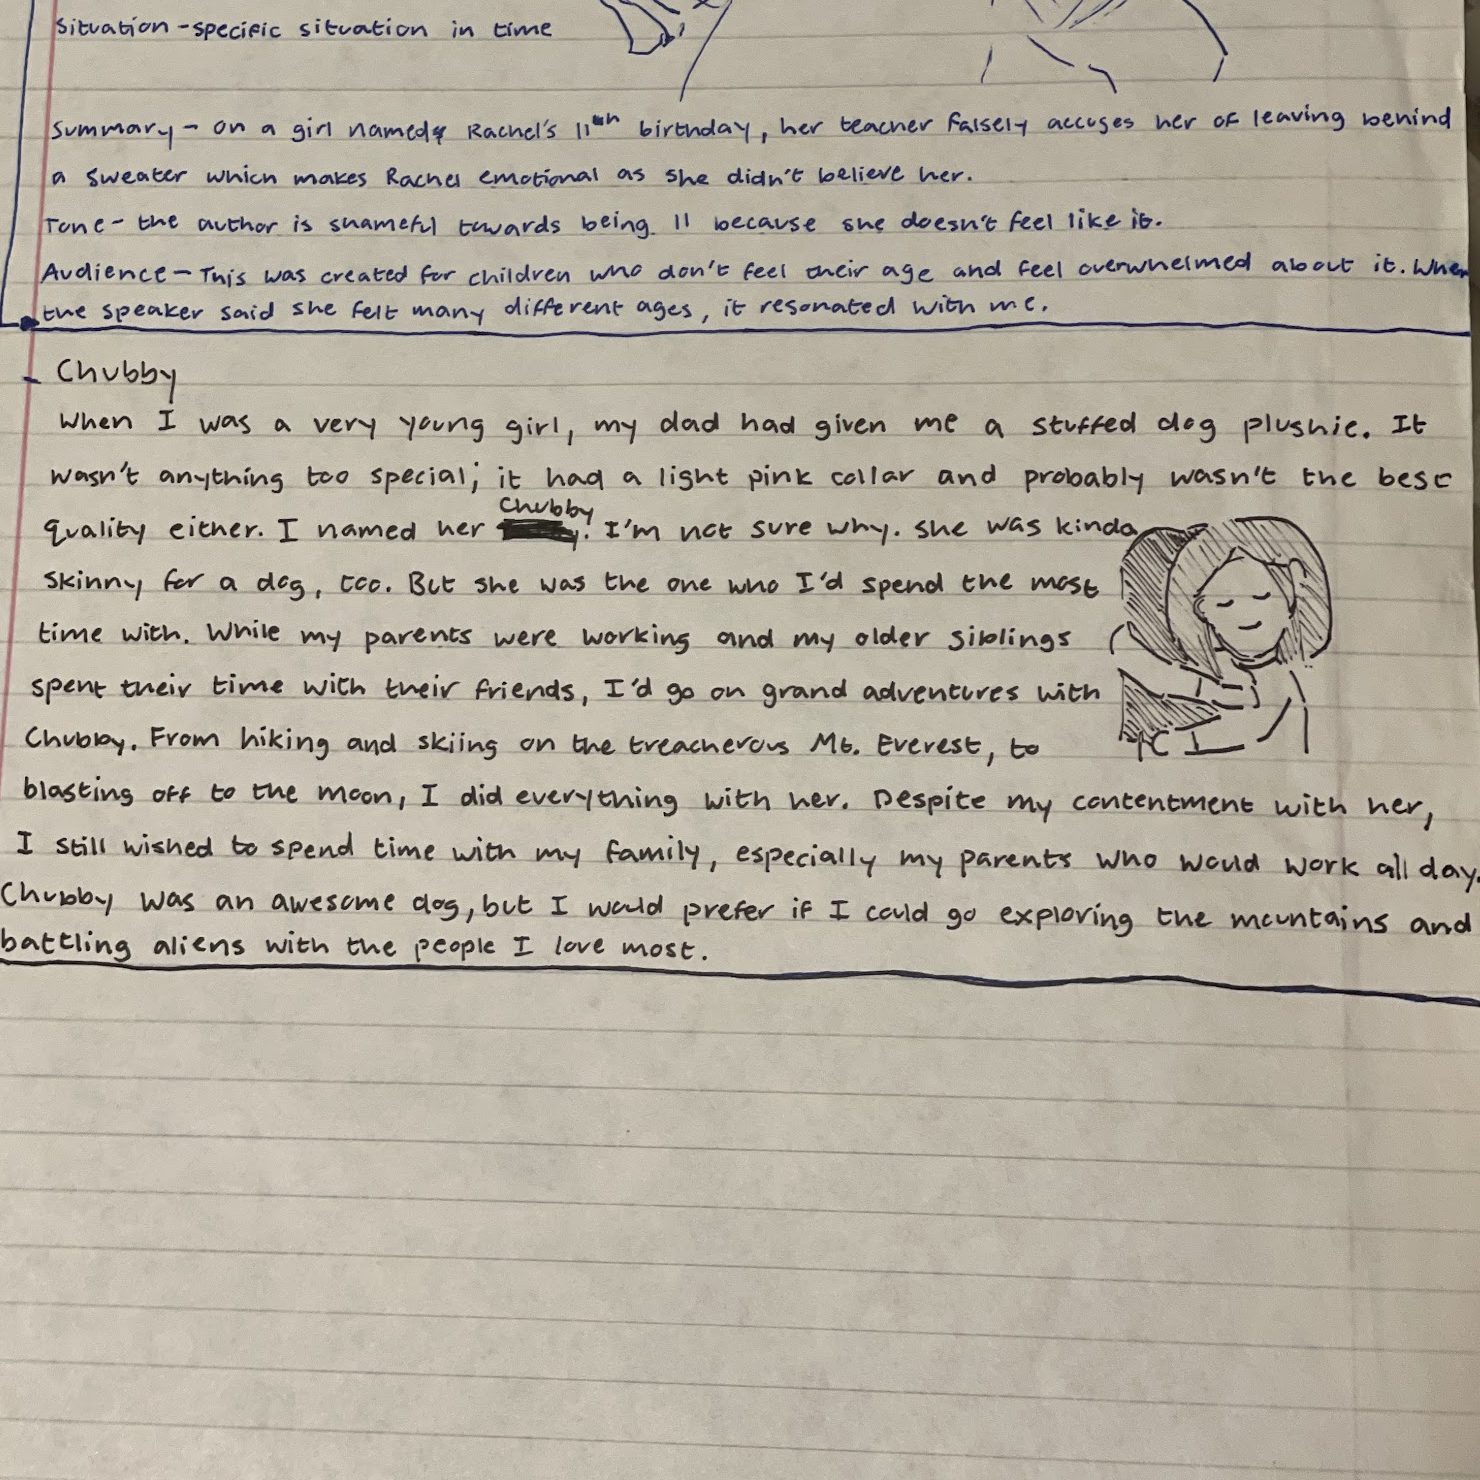 Situation - specific situation in time
Summary - on a girl named Rachel's 11th birthday, her teacher falsely accuses her of leaving behind
a sweater which makes Rachel emotional as she didn't believe her.
Tone - the author is shameful towards being 11 because she doesn't feel like it.
Audience - This was created for children who don't feel their age and feel overwhelmed about it. When
the speaker said she felt many different ages, it resonated with me.
- Chubby
When I was a very young girl, my dad had given me a stuffed dog plushie. It
wasn't anything too special; it had a light pink collar and probably wasn't the best
quality either. I named her Chubby. I'm not sure why. she was kinda
skinny for a dog, too. But she was the one who I'd spend the most
time with. While my parents were working and my older siblings
spent their time with their friends, I'd go on grand adventures with
Chubby. From hiking and skiing on the treacherous Mt. Everest, to
blasting off to the moon, I did everything with her. Despite my contentment with her,
I still wished to spend time with my family, especially my parents who would work all day.
Chubby was an awesome dog, but I would prefer if I could go exploring the mountains and
battling aliens with the people I love most.